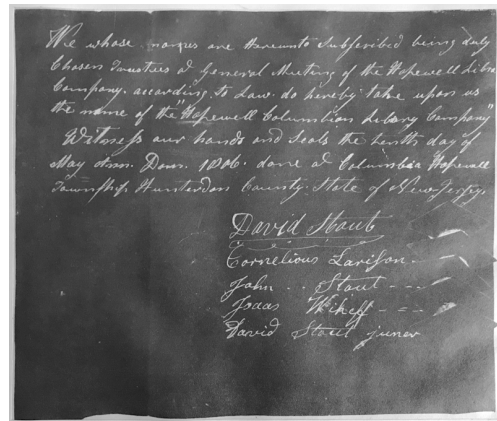 We whose names are Hereunto Subscribed being duly
Chosen Trustees at General Meeting of the Hopewell Libra
Company. according to Law. do hereby take upon us
the name of the "Hopewell Columbian Library Company"
Witness our hands and Seals the tenth day of
May Ann. Dom. 1806. done at Columbia Hopewell
Township Hunterdon County. State of New Jersey.
David Stout
Cornelious Larison
John Stout
Isaac Wikoff
David Stout juner